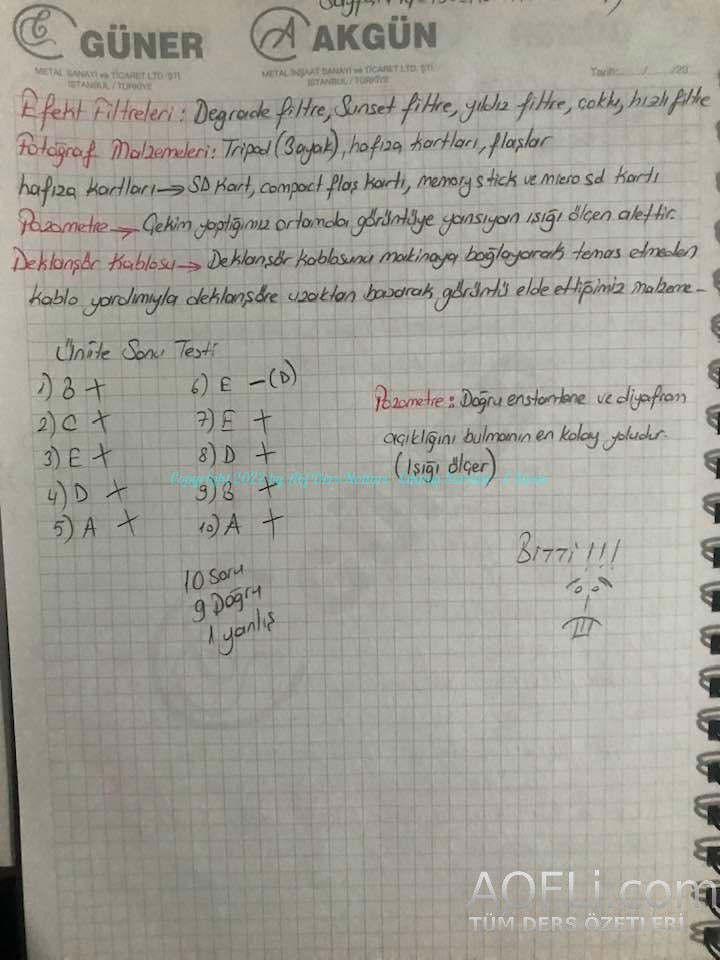 GÜNER
AKGÜN
METAL SANAYİ ve TİCARET LTD. ŞTİ.
İSTANBUL / TÜRKİYE
METAL İNŞAAT SANAYİ ve TİCARET LTD. ŞTİ.
İSTANBUL / TÜRKİYE
Tarih:....../....../20
Efekt Filtreleri: Degrade filtre, Sunset filtre, yıldız filtre, çoklu, hızlı filtre
Fotoğraf Malzemeleri: Tripod (3ayak), hafıza kartları, flaşlar
hafıza kartları → SD Kart, compact flaş kartı, memory stick ve micro sd kartı
Pozometre → Çekim yaptığımız ortamda görüntüye yansıyan ışığı ölçen alettir.
Deklanşör Kablosu → Deklanşör kablosunu makinaya bağlayarak temas etmeden
kablo yardımıyla deklanşöre uzaktan basarak görüntü elde ettiğimiz malzeme-
Ünite Sonu Testi
1) B +
2) C +
3) E +
4) D +
5) A +
6) E - (D)
7) E +
8) D +
9) B +
10) A +
Pozometre: Doğru enstantane ve diyafram
açıklığını bulmanın en kolay yoludur.
(Işığı ölçer)
10 Soru
9 Doğru
1 yanlış
BİTTİ!!!
AOFLi.com
TÜM DERS ÖZETLERİ